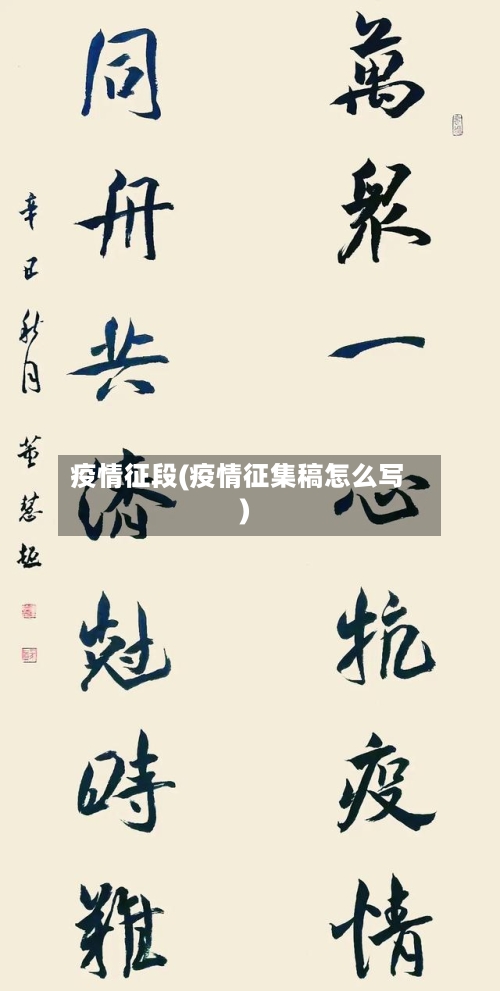 萬眾一心抗疫情
同舟共濟尅時難
辛丑秋月 董慧
疫情征段(疫情征集稿怎么写
)